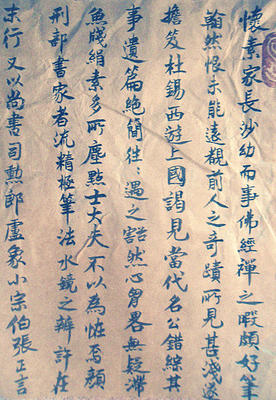 懷素家長沙幼而事佛經禪之暇頗好筆
翰然恨未能遠覩前人之奇蹟所見甚淺遂
擔笈杜錫西遊上國謁見當代名公錯綜其
事遺篇絕簡往〻遇之豁然心胷畧無疑滯
魚牋絹素多所塵點士大夫不以為恠焉顏
刑部書家者流精極筆法水鏡之辨許在
末行又以尚書司勳郎盧象小宗伯張正言